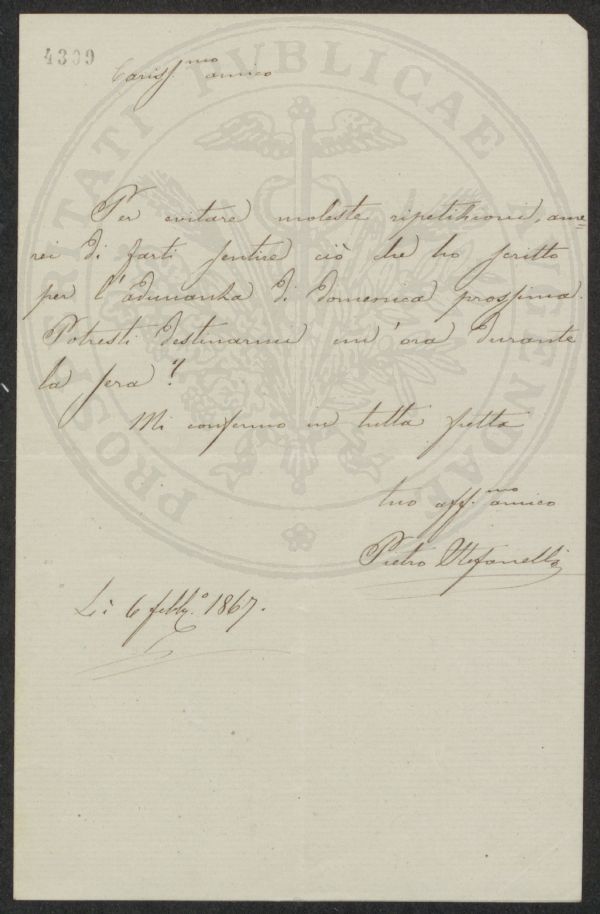 4309
Cariss.mo amico
Per evitare moleste ripetizioni, ame=
rei di farti sentire ciò che ho scritto
per l'adunanza di domenica prossima.
Potresti destinarmi un'ora durante
la sera?
Mi confermo in tutta fretta
tuo aff.mo amico
Pietro Stefanelli
Lì 6 febb.o 1867.
PROSPERITATI PVBLICAE AVGENDAE